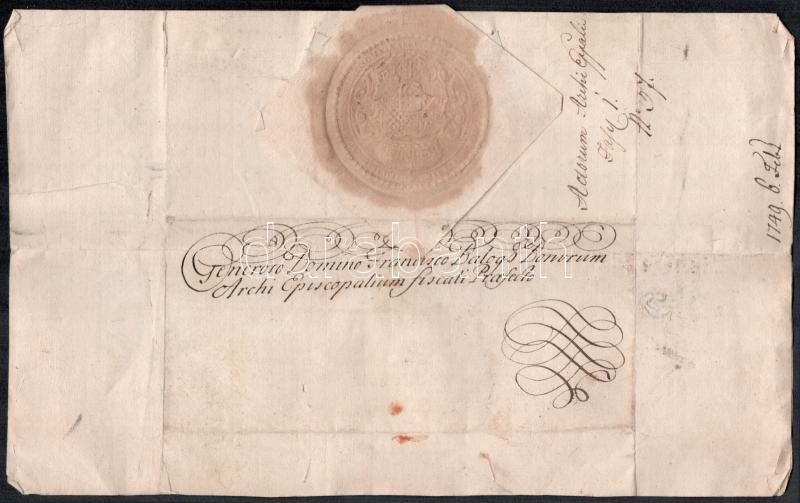 Generoso Domino Francisco Balogh Bonorum
Archi Episcopalium fiscali Præfecto
Actorum Archi Eppali
Fasc 1.
No 57.
1749. 6. Febr
darabanth.com